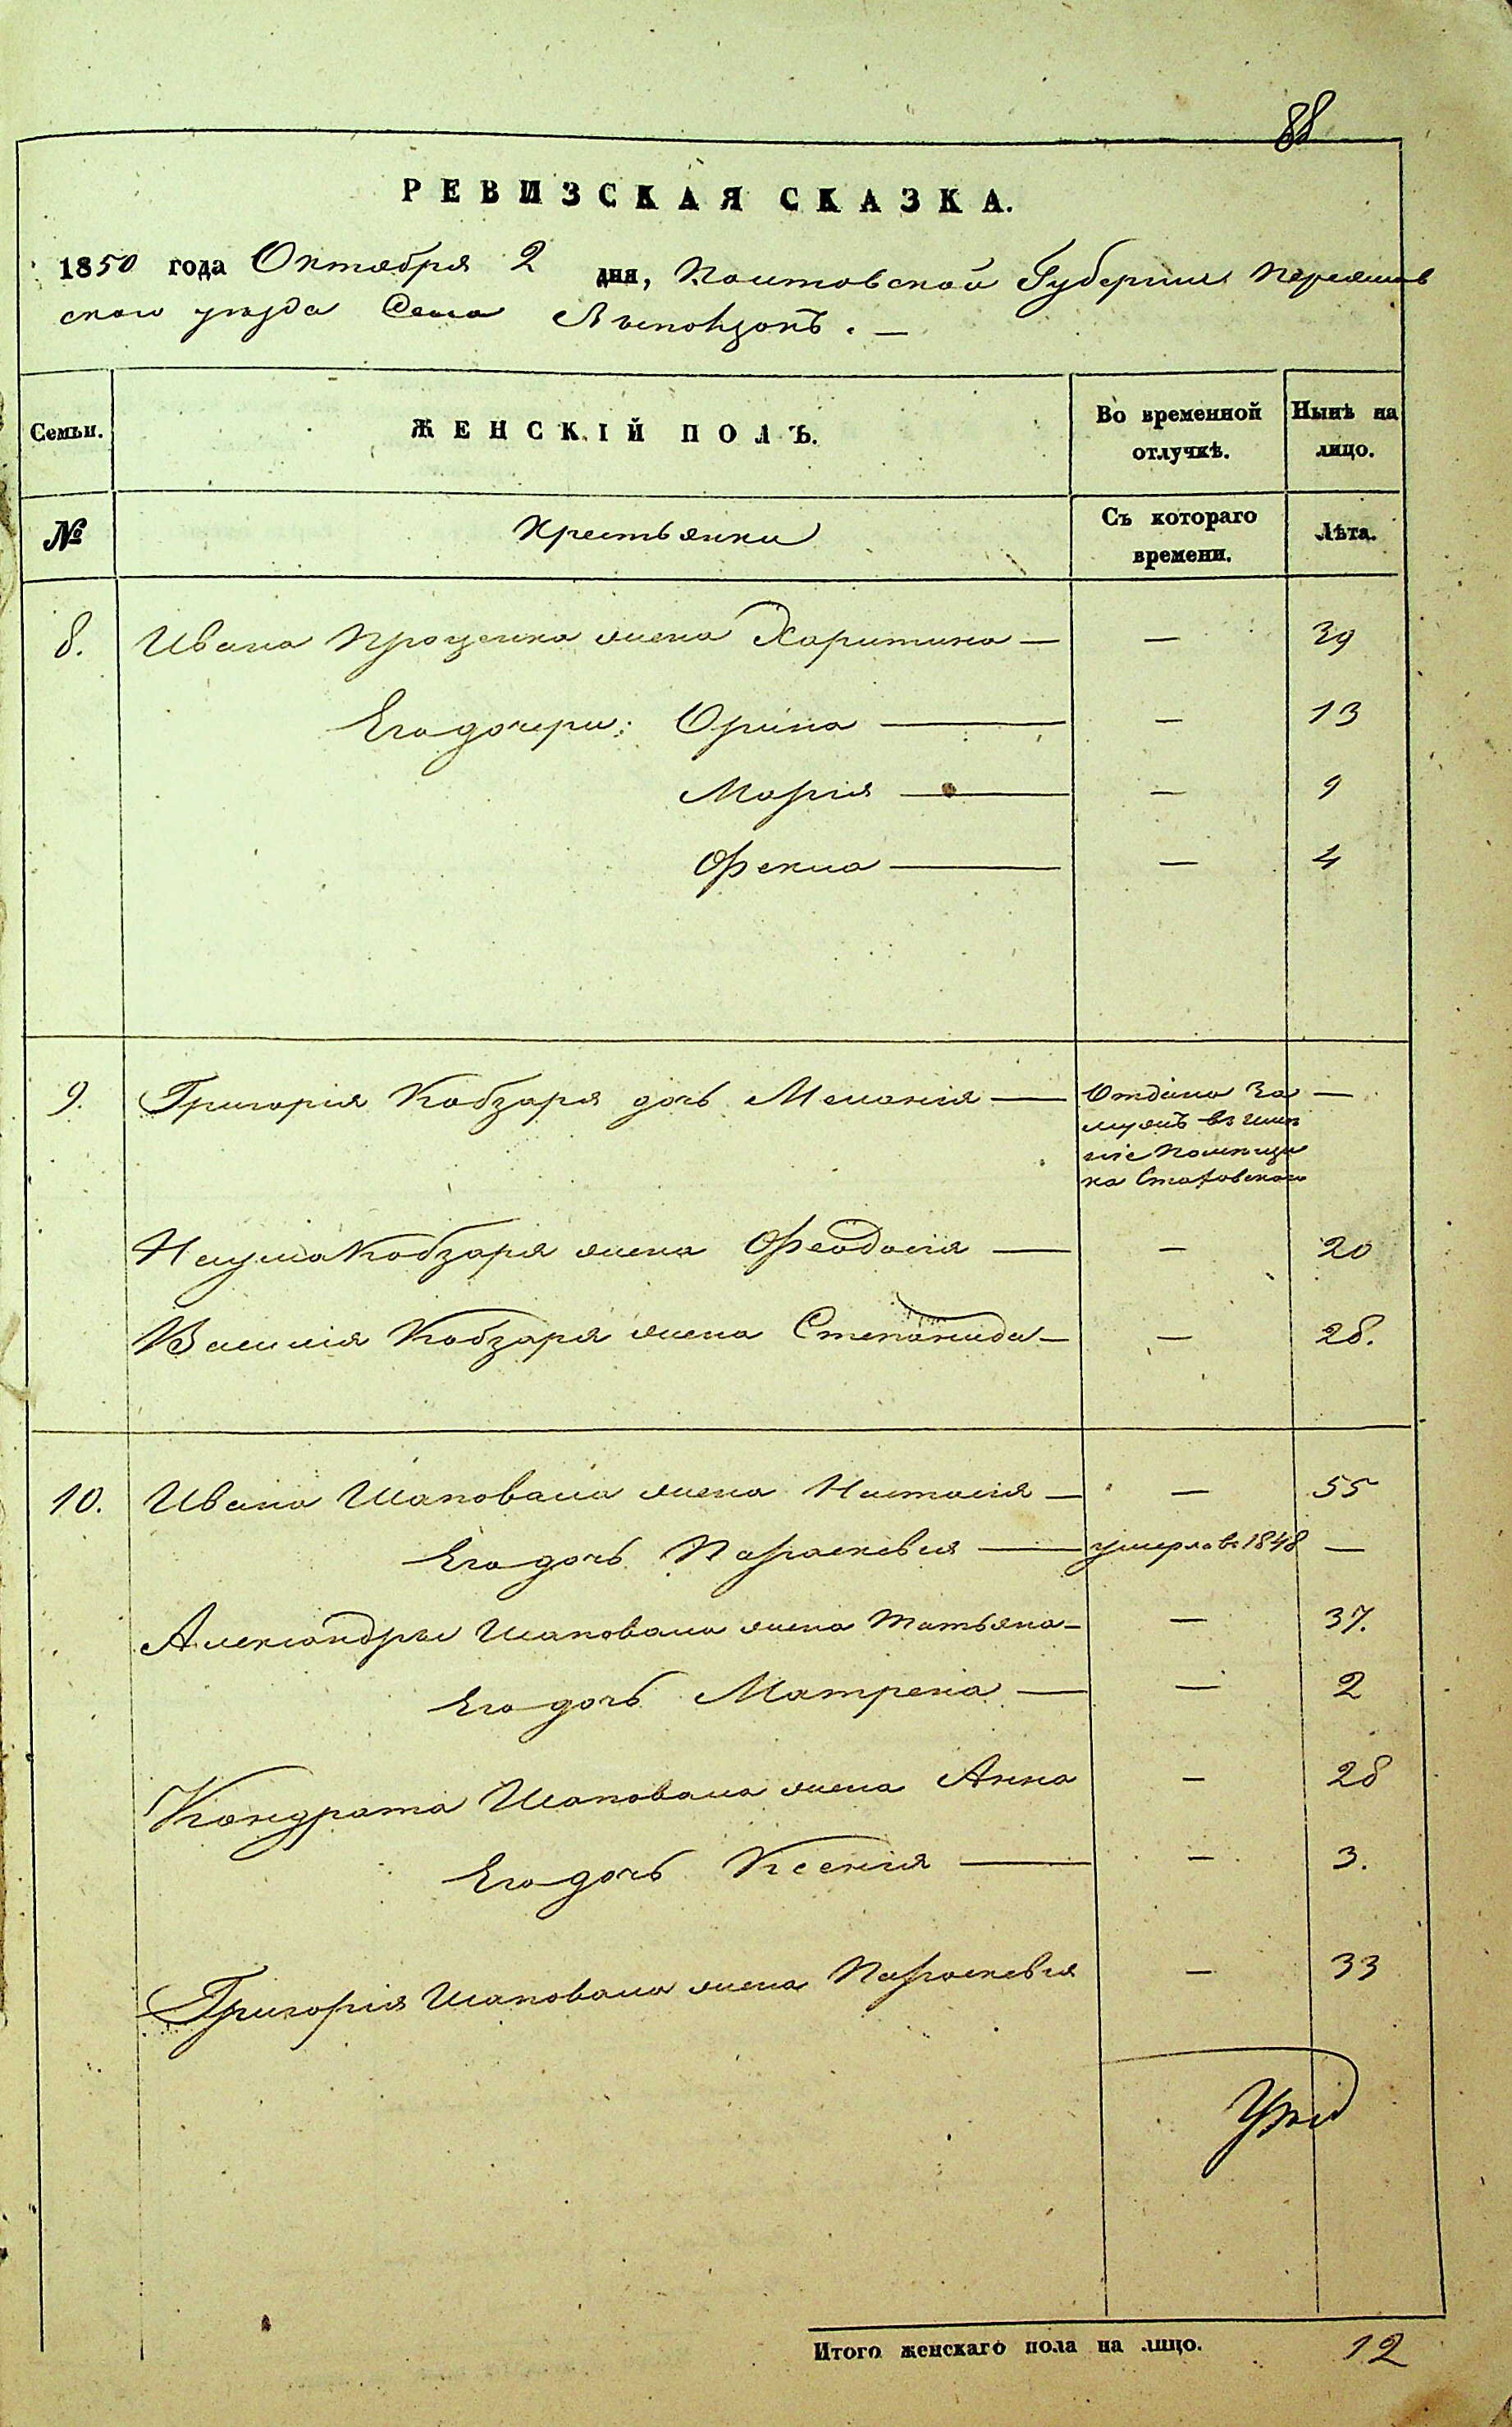 88
РЕВИЗСКАЯ СКАЗКА.
1850 года Октября 2 дня, Полтовской Губернии Переяслов
ского уезда Села
Семьи. ЖЕНСКІЙ ПОЛЪ. Во временной отлучкѣ. Нынѣ на лицо.
№ Крестьянки Съ котораго времени. Лѣта.
8. Ивана Проценка жена Харитина — — 39
Его дочери: Орина — — 13
Марія — — 9
Фекла — — 4
9. Григорія Кобзаря дочь Меланія — Отдана за —
мужъ въ име
ніе помещи
ка
Наума Кобзаря жена Феодосія — — 20
Василія Кобзаря жена Степанида — — 28.
10. Ивана Шаповала жена Настасія — — 55
Его дочь Параскевия — умерла въ 1848 —
Александры Шаповала жена Татьяна — — 37.
Его дочь Матрена — — 2
Кондрата Шаповала жена Анна — 28
Его дочь Ксенія — — 3.
Григорія Шаповала жена Параскевия — 33
Итого женскаго пола на лицо. 12